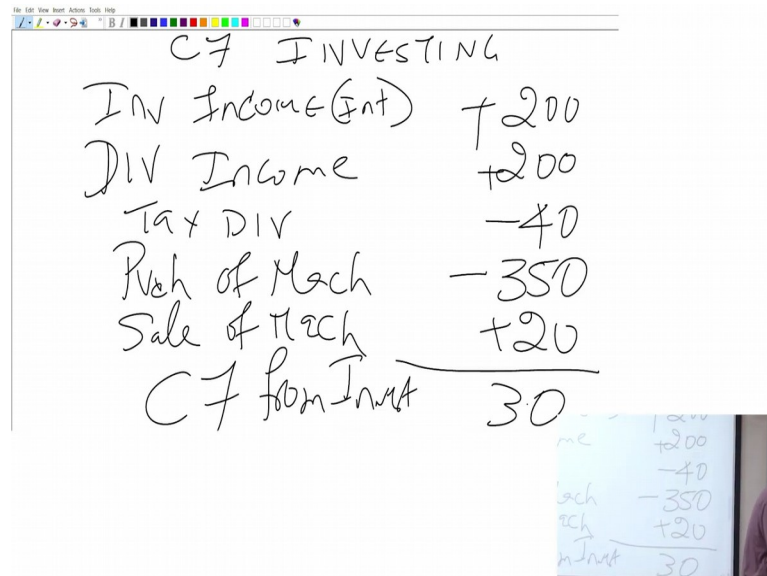 File Edit View Insert Actions Tools Help
B I
CF INVESTING
INV Income (Int) +200
DIV Income +200
Tax DIV -40
Purch of Mach -350
Sale of Mach +20
CF from Invest 30
me +200
-40
ach -350
ach +20
m Invest 30